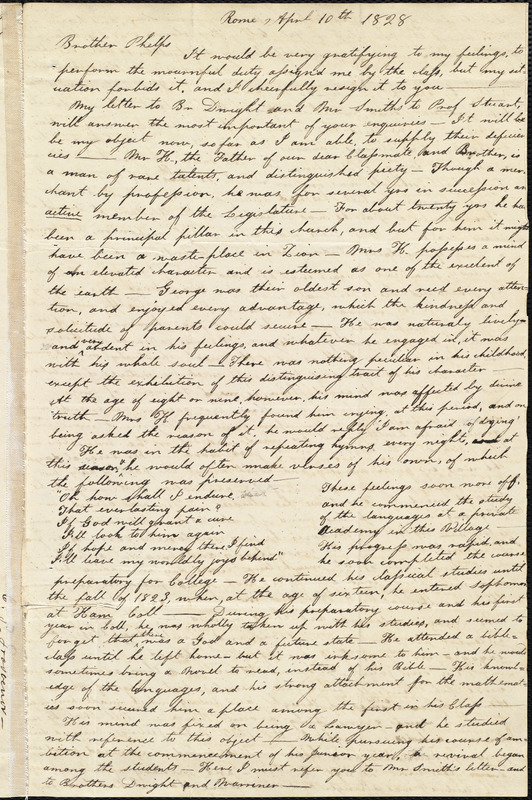 Rome, April 10th 1828
Brother Phelps
It would be very gratifying to my feelings, to
perform the mournful duty assign'd me by the class, but my sit-
uation forbids it, and I cheerfully resign it to you —
My letter to Br Dwight and Mr Smiths to Prof Stuart,
will answer the most important of your enquiries — It will be
be my object now, so far as I am able, to supply their deficien-
cies — Mr H., the Father of our dear Classmate and Brother, is
a man of rare talents, and distinguished piety — Though a mer-
chant by profession, he was for several yrs in succession an
active member of the Legislature — For about twenty yrs he has
been a principal pillar in this church, and but for him it might
have been a waste-place in Zion — Mrs H. possesses a mind
of an elevated character and is esteemed as one of the excelent of
the earth — George was their oldest son and recd every atten-
tion, and enjoyed every advantage, which the kindness and
solicitude of parents could secure — He was naturaly lively
and very ardent in his feelings, and whatever he engaged in, it was
with his whole soul — There was nothing peculiar in his childhood,
except the exhibition of this distinguising trait of his character —
At the age of eight or nine, however, his mind was affected by divine
truth — Mrs H. frequently found him crying, at this period, and on
being asked the reason of it he would reply "I am afraid of dying"
He was in the habit of repeating hymns every night, and at
this season, he would often make verses of his own, of which
the following was preserved —
"Oh how shall I endure,
That everlasting pain?
If God will grant a cure
I'll look to him again
If hope and mercy there I find
I'll leave my worldly joys behind"
These feelings soon wore off,
and he commenced the study
of the languages at a private
academy in this Village
His progress was rapid, and
he soon completed the course
preparatory for College — He continued his classical studies until
the fall of 1823, when, at the age of sixteen, he entered Sophomore
at Ham. Coll — During his preparatory course and his first
year in Coll. he was wholly taken up with his studies, and seemed to
forget that there was a God and a future state — He attended a bible-
class until he left home — but it was irksome to him — and he would
sometimes bring a Novel to read, instead of his Bible — His knowl-
edge of the languages, and his strong attachment for the mathemat-
ics soon secured him a place among the first in his Class
His mind was fixed on being a Lawyer — and he studied
with reference to this object — While pursuing his course of am-
bition at the commencement of his junior year, a revival began
among the students — Here I must refer you to Mr Smith's letter — and
to Brothers Dwight and Warriner —